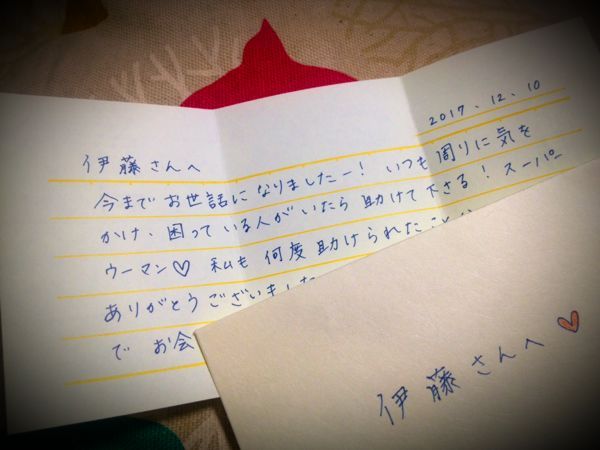 2017.12.10
伊藤さんへ
今までお世話になりましたー！いつも周りに気を
かけ、困っている人がいたら助けて下さる！スーパー
ウーマン♡ 私も何度助けられたこと
ありがとうございました
で お会
伊藤さんへ♡